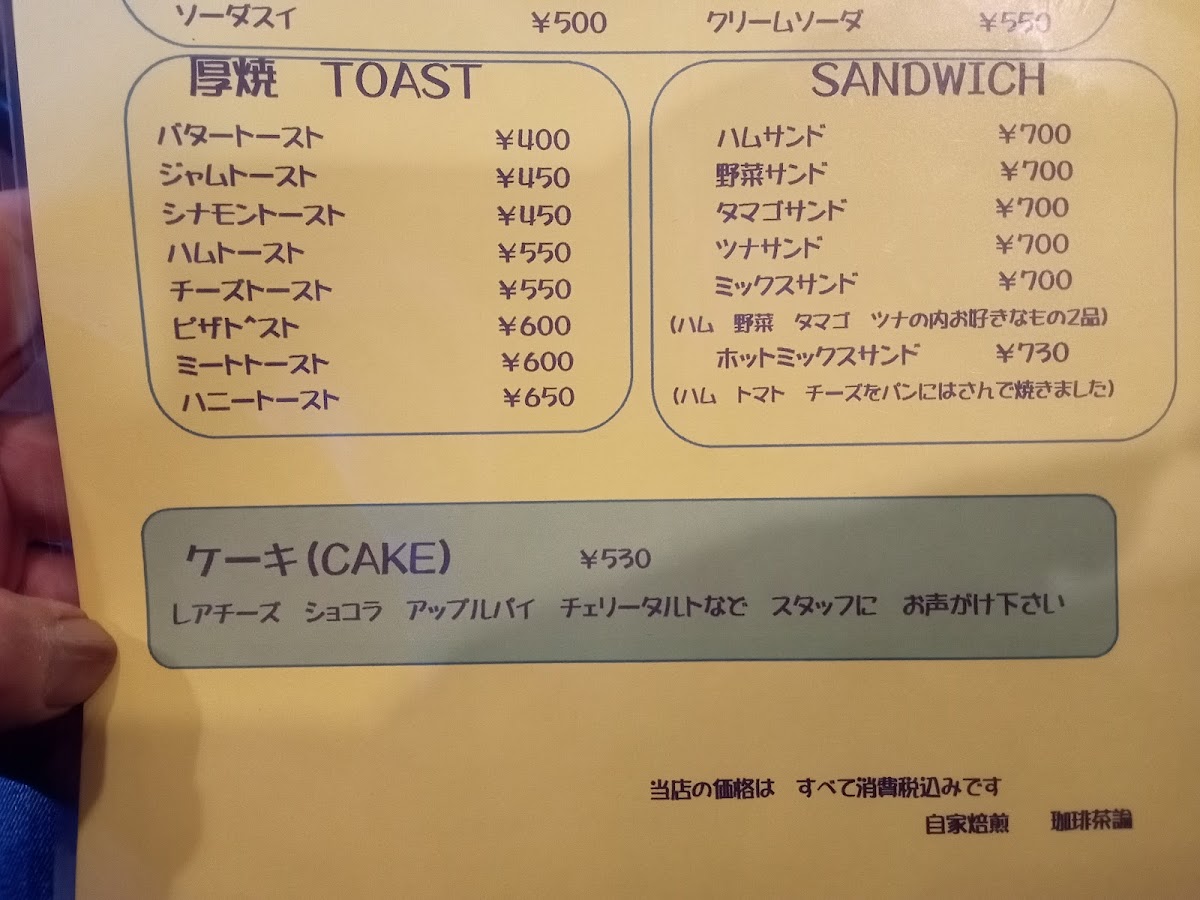 ソーダスイ ¥500 クリームソーダ ¥550
厚焼 TOAST
バタートースト ¥400
ジャムトースト ¥450
シナモントースト ¥450
ハムトースト ¥550
チーズトースト ¥550
ピザト^スト ¥600
ミートトースト ¥600
ハニートースト ¥650
SANDWICH
ハムサンド ¥700
野菜サンド ¥700
タマゴサンド ¥700
ツナサンド ¥700
ミックスサンド ¥700
(ハム 野菜 タマゴ ツナの内お好きなもの2品)
ホットミックスサンド ¥730
(ハム トマト チーズをパンにはさんで焼きました)
ケーキ(CAKE) ¥530
レアチーズ ショコラ アップルパイ チェリータルトなど スタッフに お声がけ下さい
当店の価格は すべて消費税込みです
自家焙煎 珈琲茶論